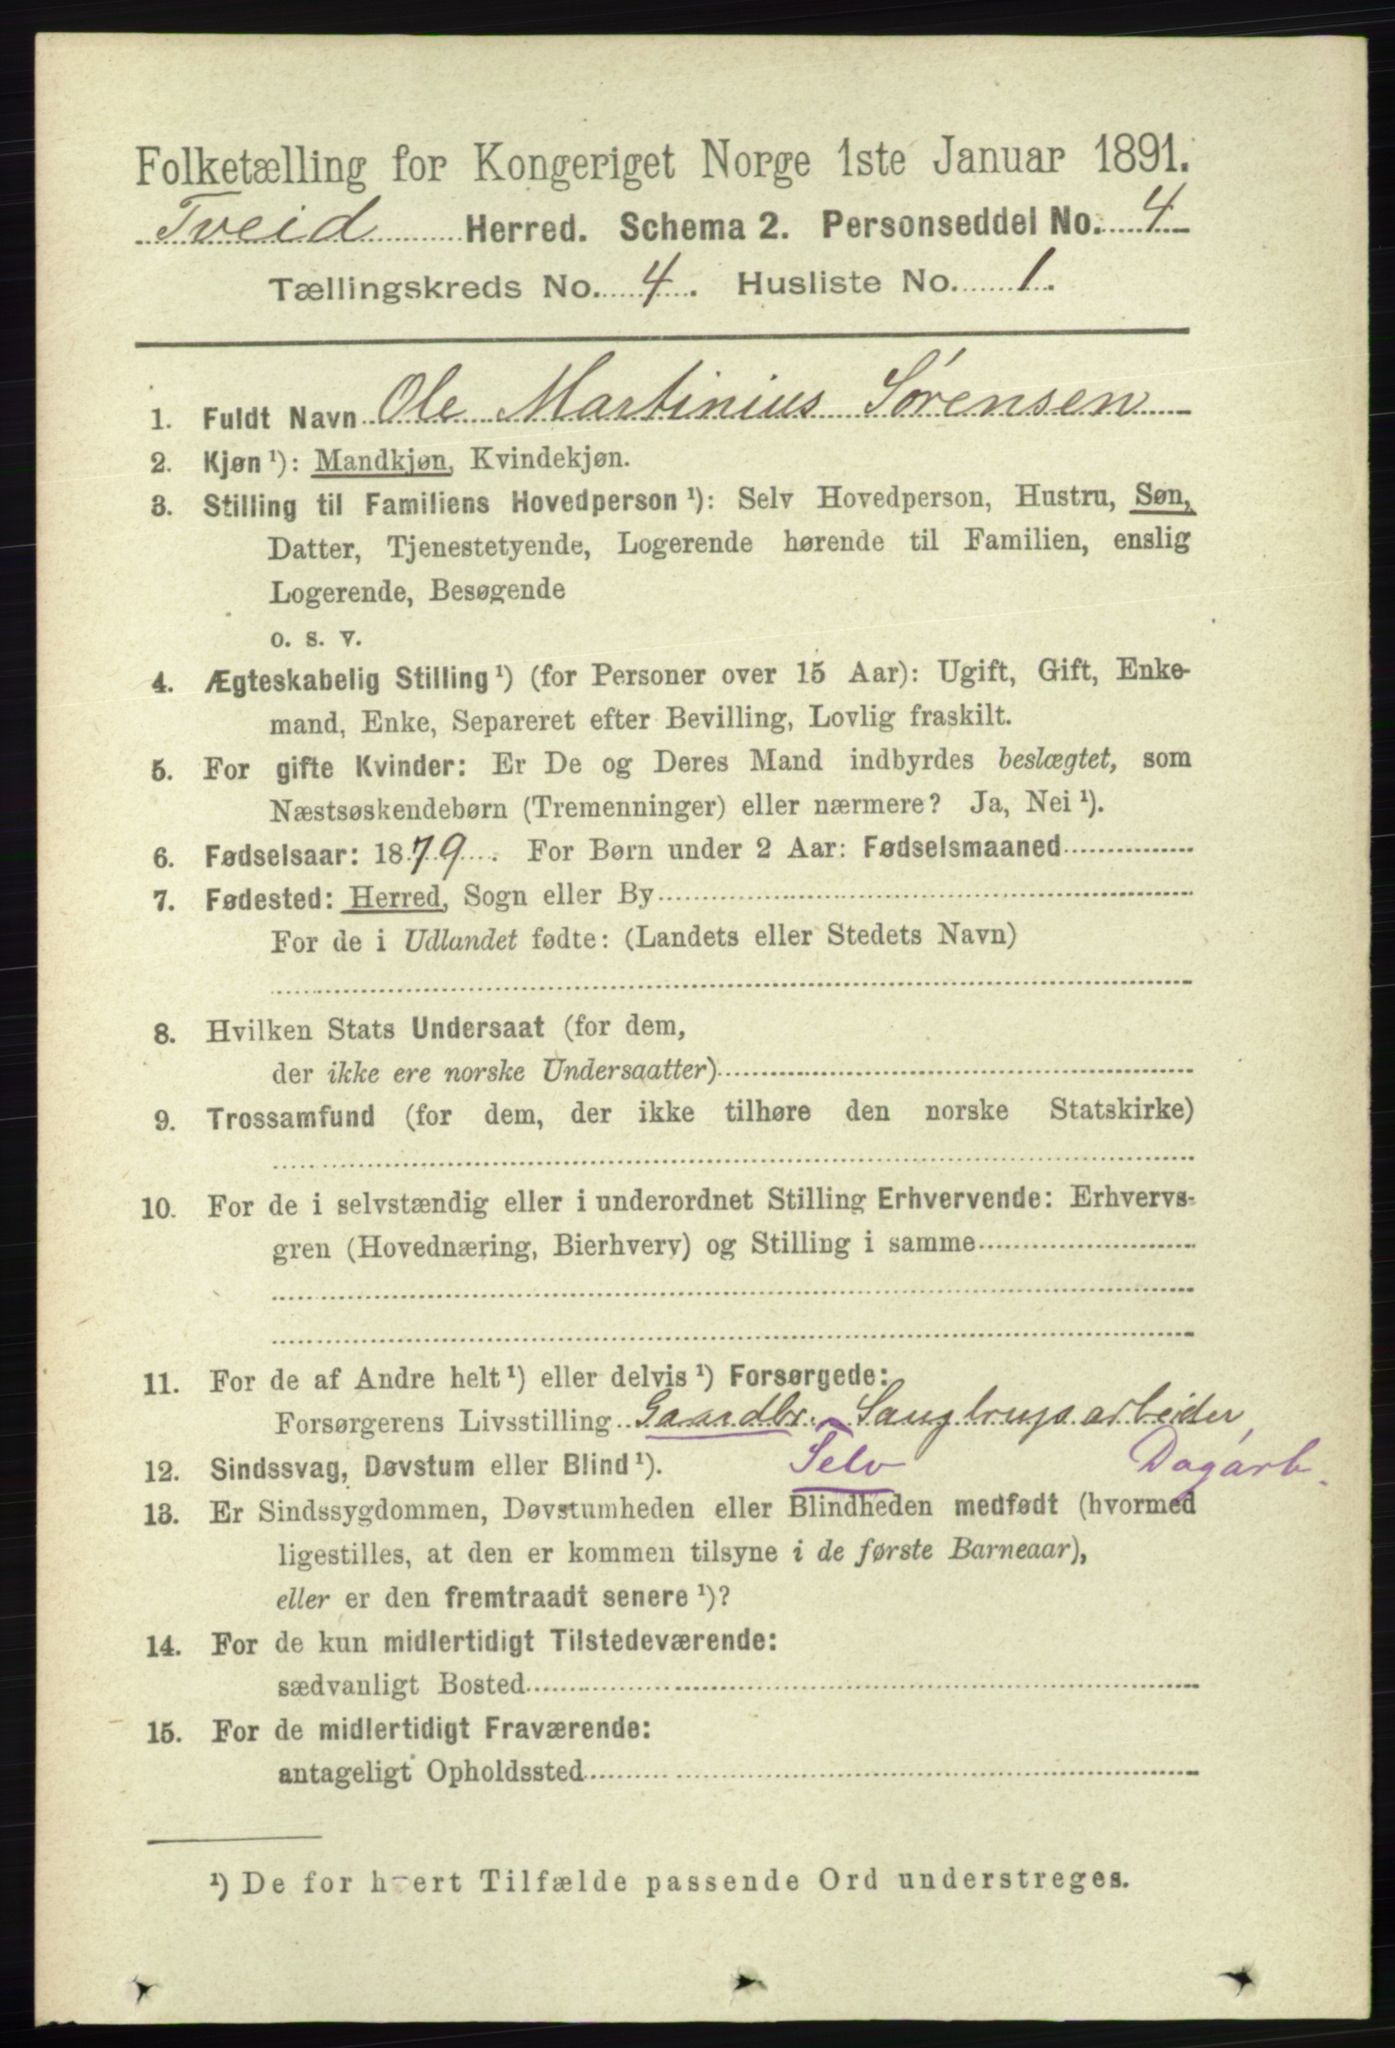 Folketælling for Kongeriget Norge 1ste Januar 1891.
Tveid Herred. Schema 2. Personseddel No. 4
Tællingskreds No. 4. Husliste No. 1.
1. Fuldt Navn Ole Martinius Sørensen
2. Kjøn ¹): Mandkjøn, Kvindekjøn.
3. Stilling til Familiens Hovedperson ¹): Selv Hovedperson, Hustru, Søn,
Datter, Tjenestetyende, Logerende hørende til Familien, enslig
Logerende, Besøgende
o. s. v.
4. Ægteskabelig Stilling ¹) (for Personer over 15 Aar): Ugift, Gift, Enke-
mand, Enke, Separeret efter Bevilling, Lovlig fraskilt.
5. For gifte Kvinder: Er De og Deres Mand indbyrdes beslægtet, som
Næstsøskendebørn (Tremenninger) eller nærmere? Ja, Nei ¹).
6. Fødselsaar: 1879. For Børn under 2 Aar: Fødselsmaaned
7. Fødested: Herred, Sogn eller By
For de i Udlandet fødte: (Landets eller Stedets Navn)
8. Hvilken Stats Undersaat (for dem,
der ikke ere norske Undersaatter)
9. Trossamfund (for dem, der ikke tilhøre den norske Statskirke)
10. For de i selvstændig eller i underordnet Stilling Erhvervende: Erhvervs-
gren (Hovednæring, Bierhverv) og Stilling i samme
11. For de af Andre helt ¹) eller delvis ¹) Forsørgede:
Forsørgerens Livsstilling Gaardbr.
12. Sindssvag, Døvstum eller Blind ¹). Selv Dagarb.
13. Er Sindssygdommen, Døvstumheden eller Blindheden medfødt (hvormed
ligestilles, at den er kommen tilsyne i de første Barneaar),
eller er den fremtraadt senere ¹)?
14. For de kun midlertidigt Tilstedeværende:
sædvanligt Bosted
15. For de midlertidigt Fraværende:
antageligt Opholdssted
¹) De for hvert Tilfælde passende Ord understreges.